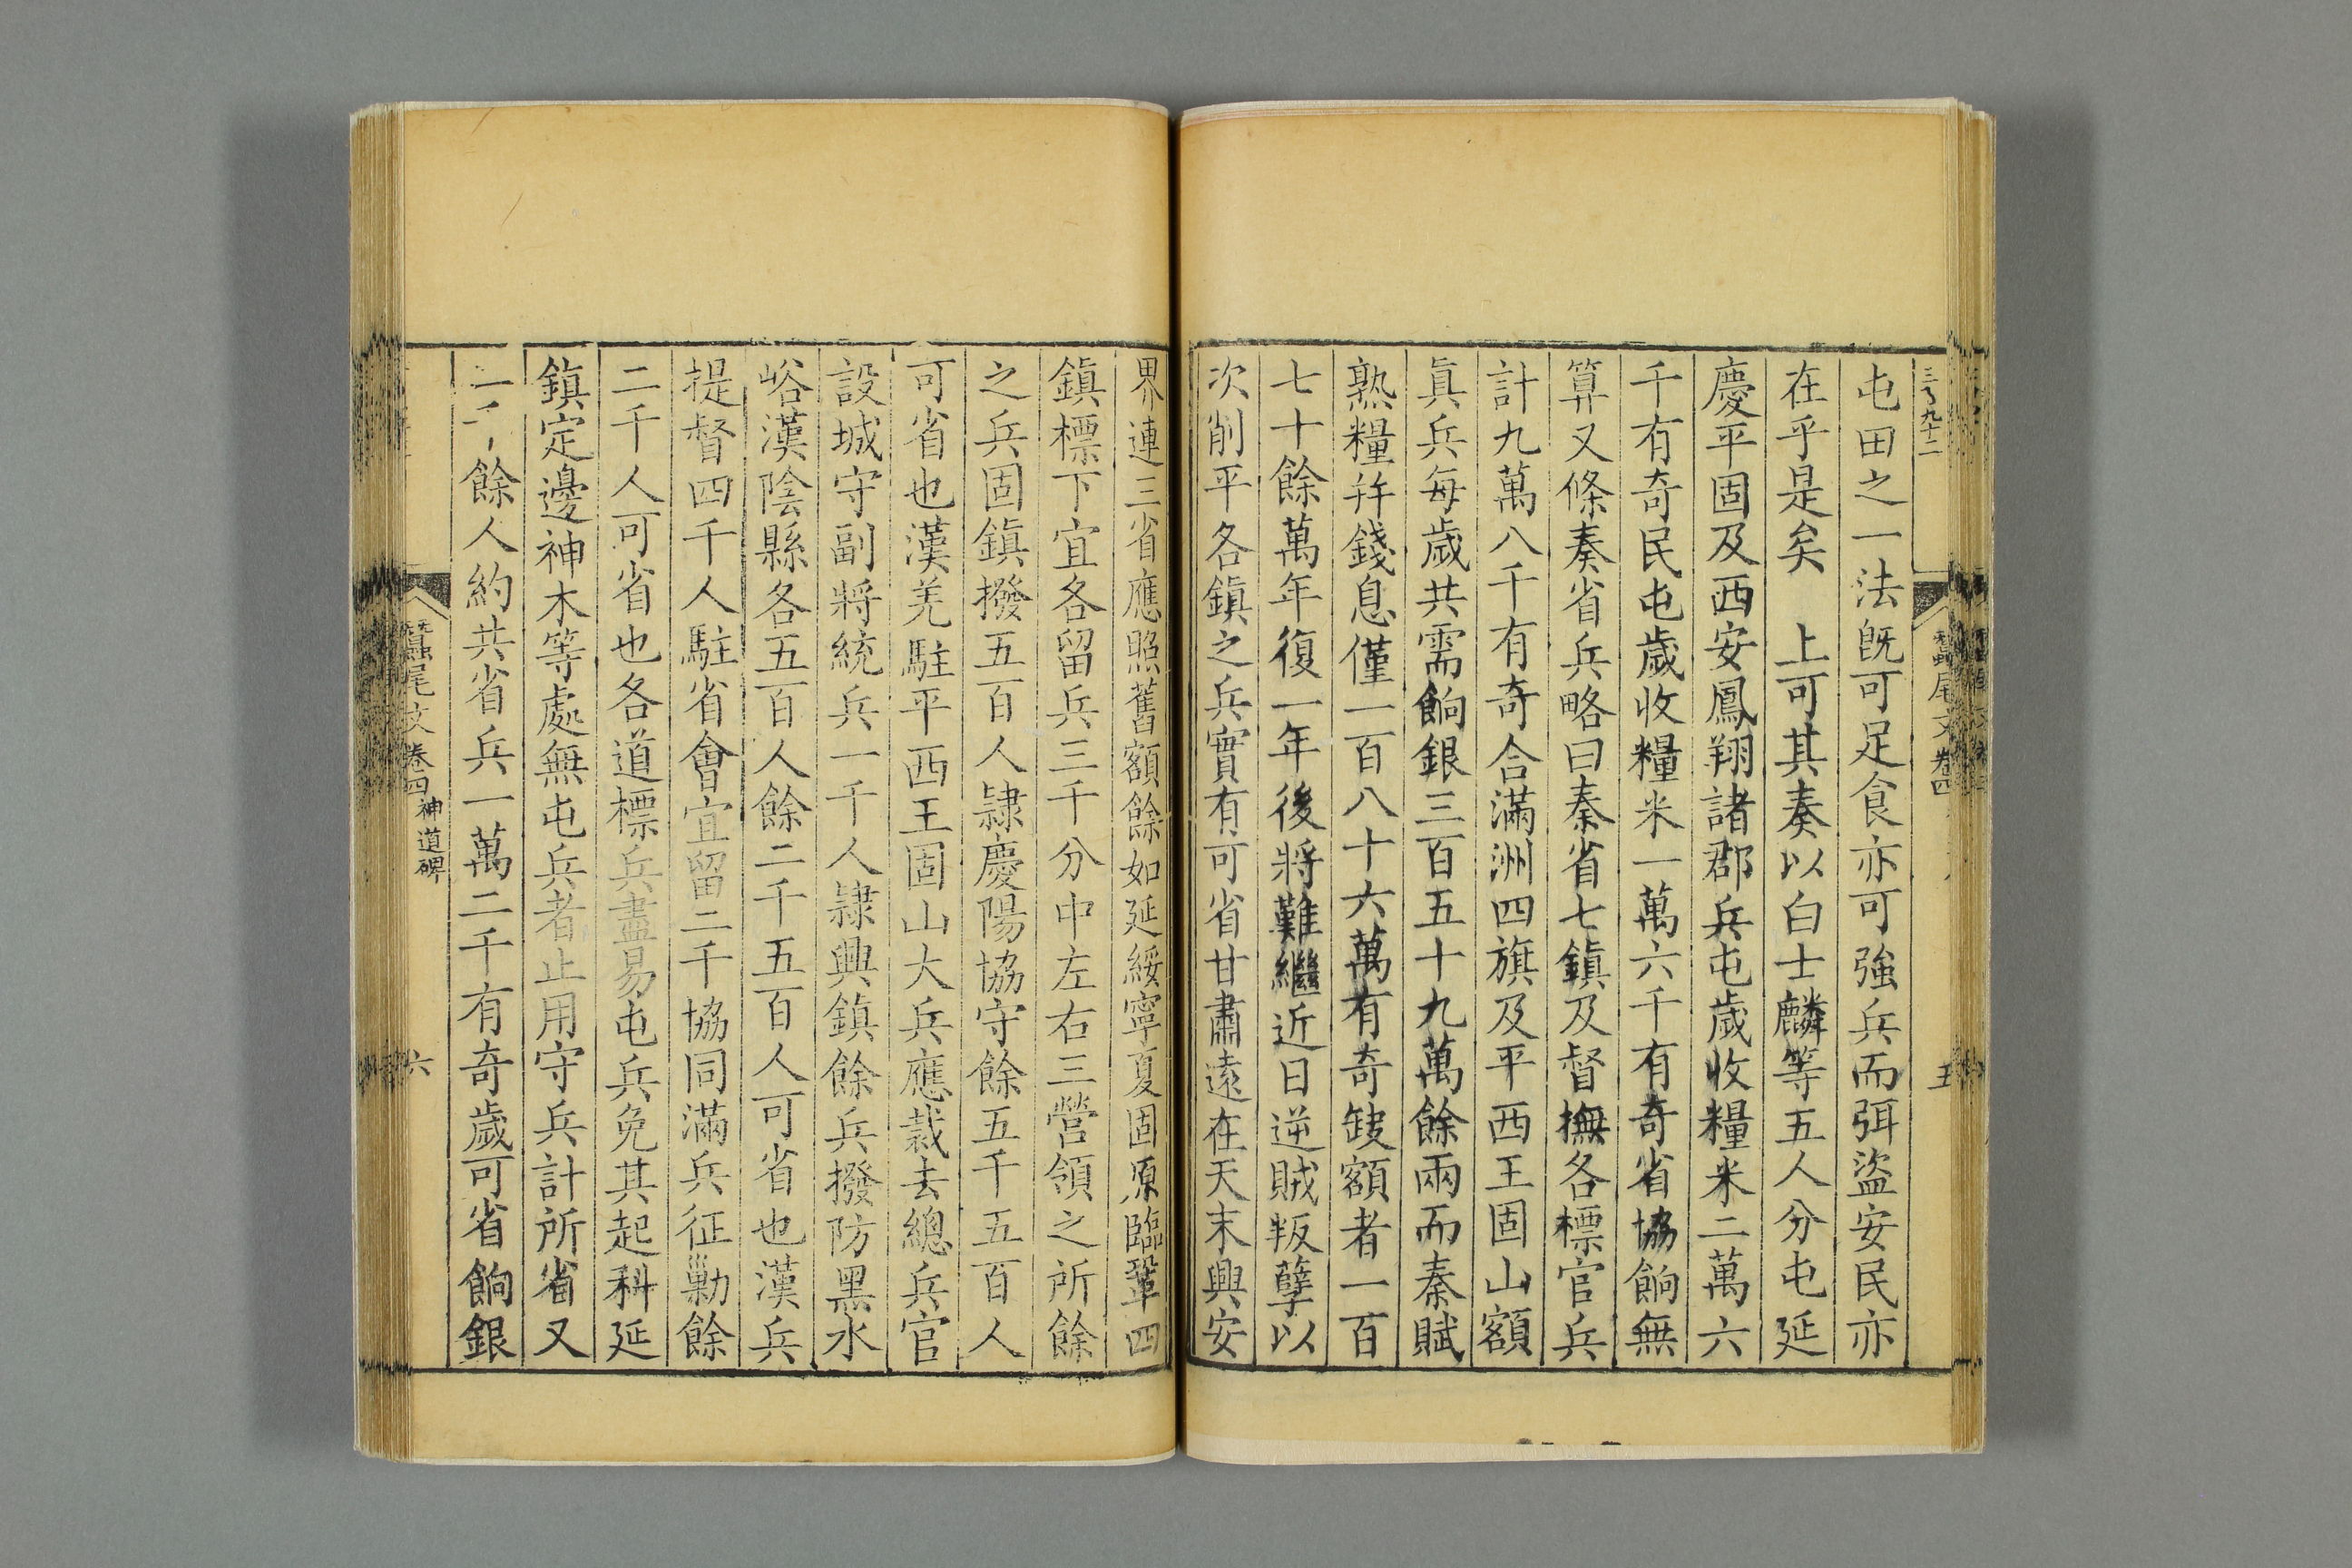 屯田之一法既可足食亦可強兵而弭盜安民亦
在乎是矣　上可其奏以白士麟等五人分屯延
慶平固及西安鳳翔諸郡兵屯歲收糧米二萬六
千有奇民屯歲收糧米一萬六千有奇省協餉無
算又條奏省兵略曰秦省七鎮及督撫各標官兵
計九萬八千有奇合滿洲四旗及平西王固山額
眞兵每歲共需餉銀三百五十九萬餘兩而秦賦
熟糧幷錢息僅一百八十六萬有奇缺額者一百
七十餘萬年復一年後將難繼近日逆賊叛孽以
次削平各鎮之兵實有可省甘肅遠在天末興安
蠶尾文 卷四
五
界連三省應照舊額餘如延綏寧夏固原臨鞏四
鎮標下宜各留兵三千分中左右三營領之所餘
之兵固鎮撥五百人隷慶陽協守餘五千五百人
可省也漢羌駐平西王固山大兵應裁去總兵官
設城守副將統兵一千人隷興鎮餘兵撥防黑水
峪漢陰縣各五百人餘二千五百人可省也漢兵
提督四千人駐省會宜留二千協同滿兵征勦餘
二千人可省也各道標兵盡易屯兵免其起科延
鎮定邊神木等處無屯兵者止用守兵計所省又
一千餘人約共省兵一萬二千有奇歲可省餉銀
蠶尾文 卷四 神道碑
六